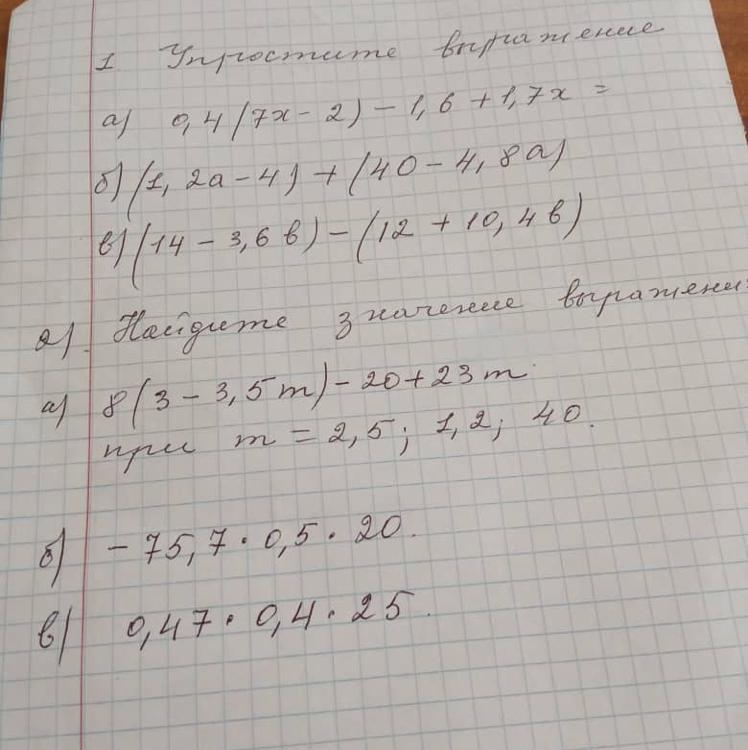 1 Упростите выражение
а) 0,4(7х - 2) - 1,6 + 1,7х =
б) (1, 2а - 4) + (40 - 4, 8а)
в) (14 - 3,6 в) - (12 + 10, 4 в)
2). Найдите значение выражени
а) 8(3 - 3,5 m) - 20 + 23 m
при m = 2,5; 1,2; 40.
б) - 75,7 · 0,5 · 20.
в) 0,47 · 0,4 · 25.